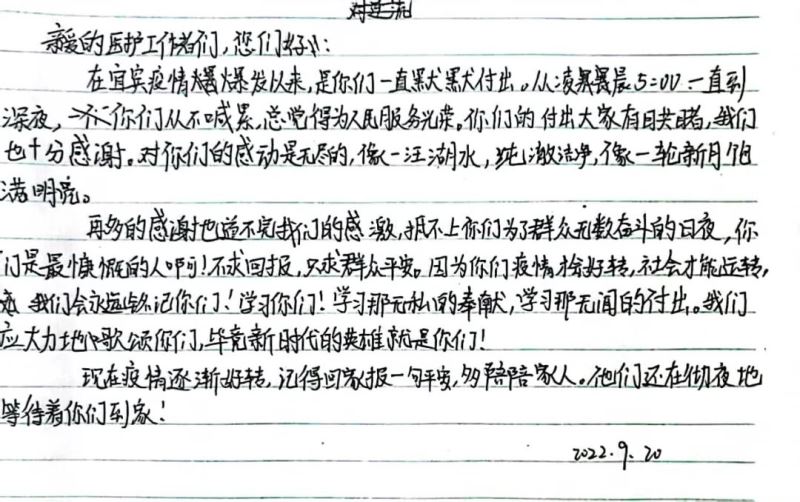 亲爱的医护工作者们，您们好：
在宜宾疫情爆发以来，是你们一直默默付出。从凌晨5:00一直到
深夜，你们从不喊累，总觉得为人民服务光荣。你们的付出大家有目共睹，我们
也十分感谢。对你们的感动是无尽的，像一汪湖水，纯澈洁净，像一轮新月饱
满明亮。
再多的感谢也道不完我们的感激，抵不上你们为了群众无数奋斗的日夜，你
们是最慷慨的人啊！不求回报，只求群众平安。因为你们疫情才会好转，社会才能运转，
我们会永远铭记你们！学习你们！学习那无私的奉献，学习那无闻的付出。我们
应大力地歌颂你们，毕竟新时代的英雄就是你们！
现在疫情逐渐好转，记得回家报一句平安，多陪陪家人。他们还在彻夜地
等待着你们到家！
2022.9.20